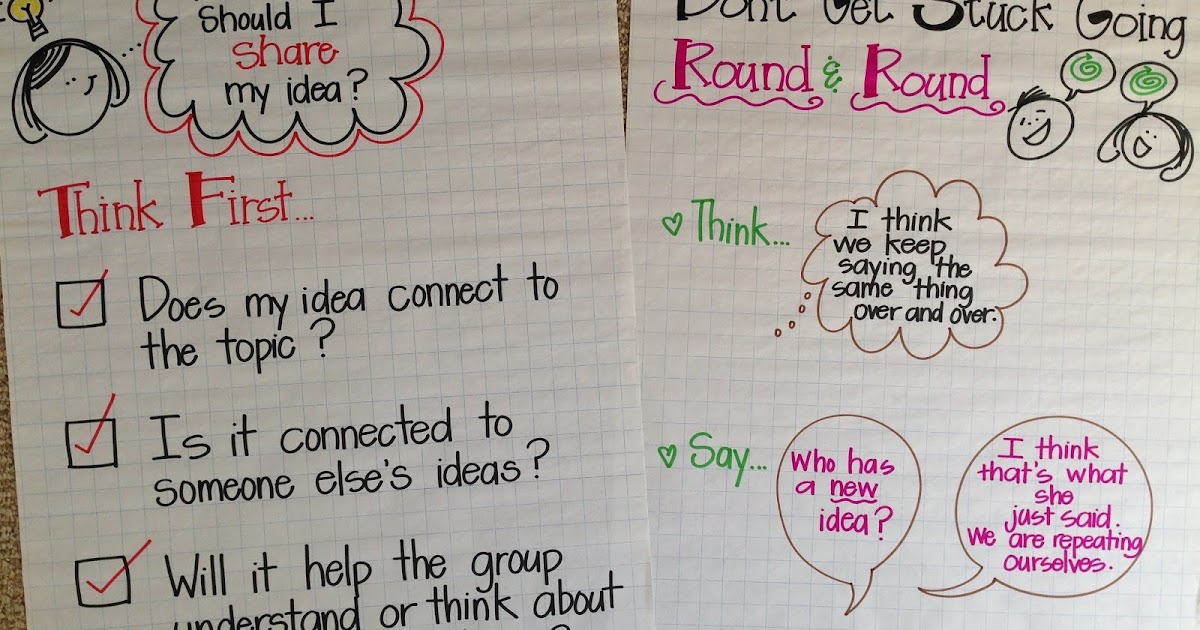 Should I
share
my idea?
Think First...
Does my idea connect to
the topic?
Is it connected to
someone else's ideas?
Will it help the group
understand or think about
Don't Get Stuck Going
Round & Round
Think...
I think
we keep
saying the
same thing
over and over.
Say...
Who has
a new
idea?
I think
that's what
she
just said.
We are repeating
ourselves.